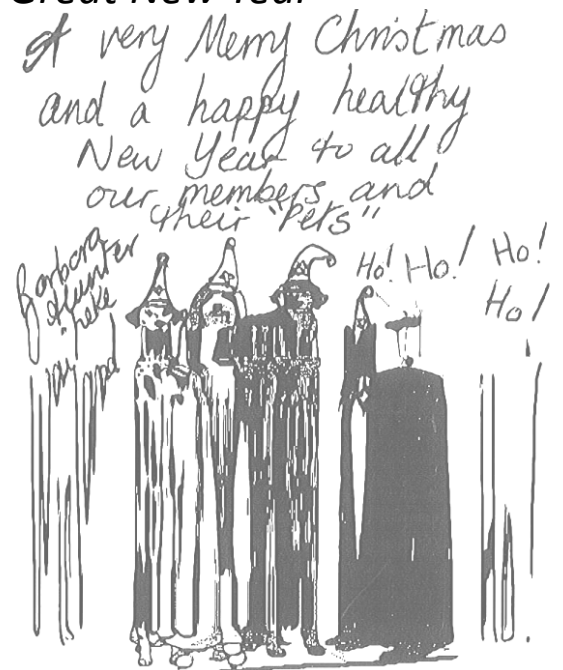 Great New Year
A very Merry Christmas
and a happy healthy
New Year to all
our members and
their "Pets"
Ho! Ho! Ho!
Ho!
Barbara
Hunter